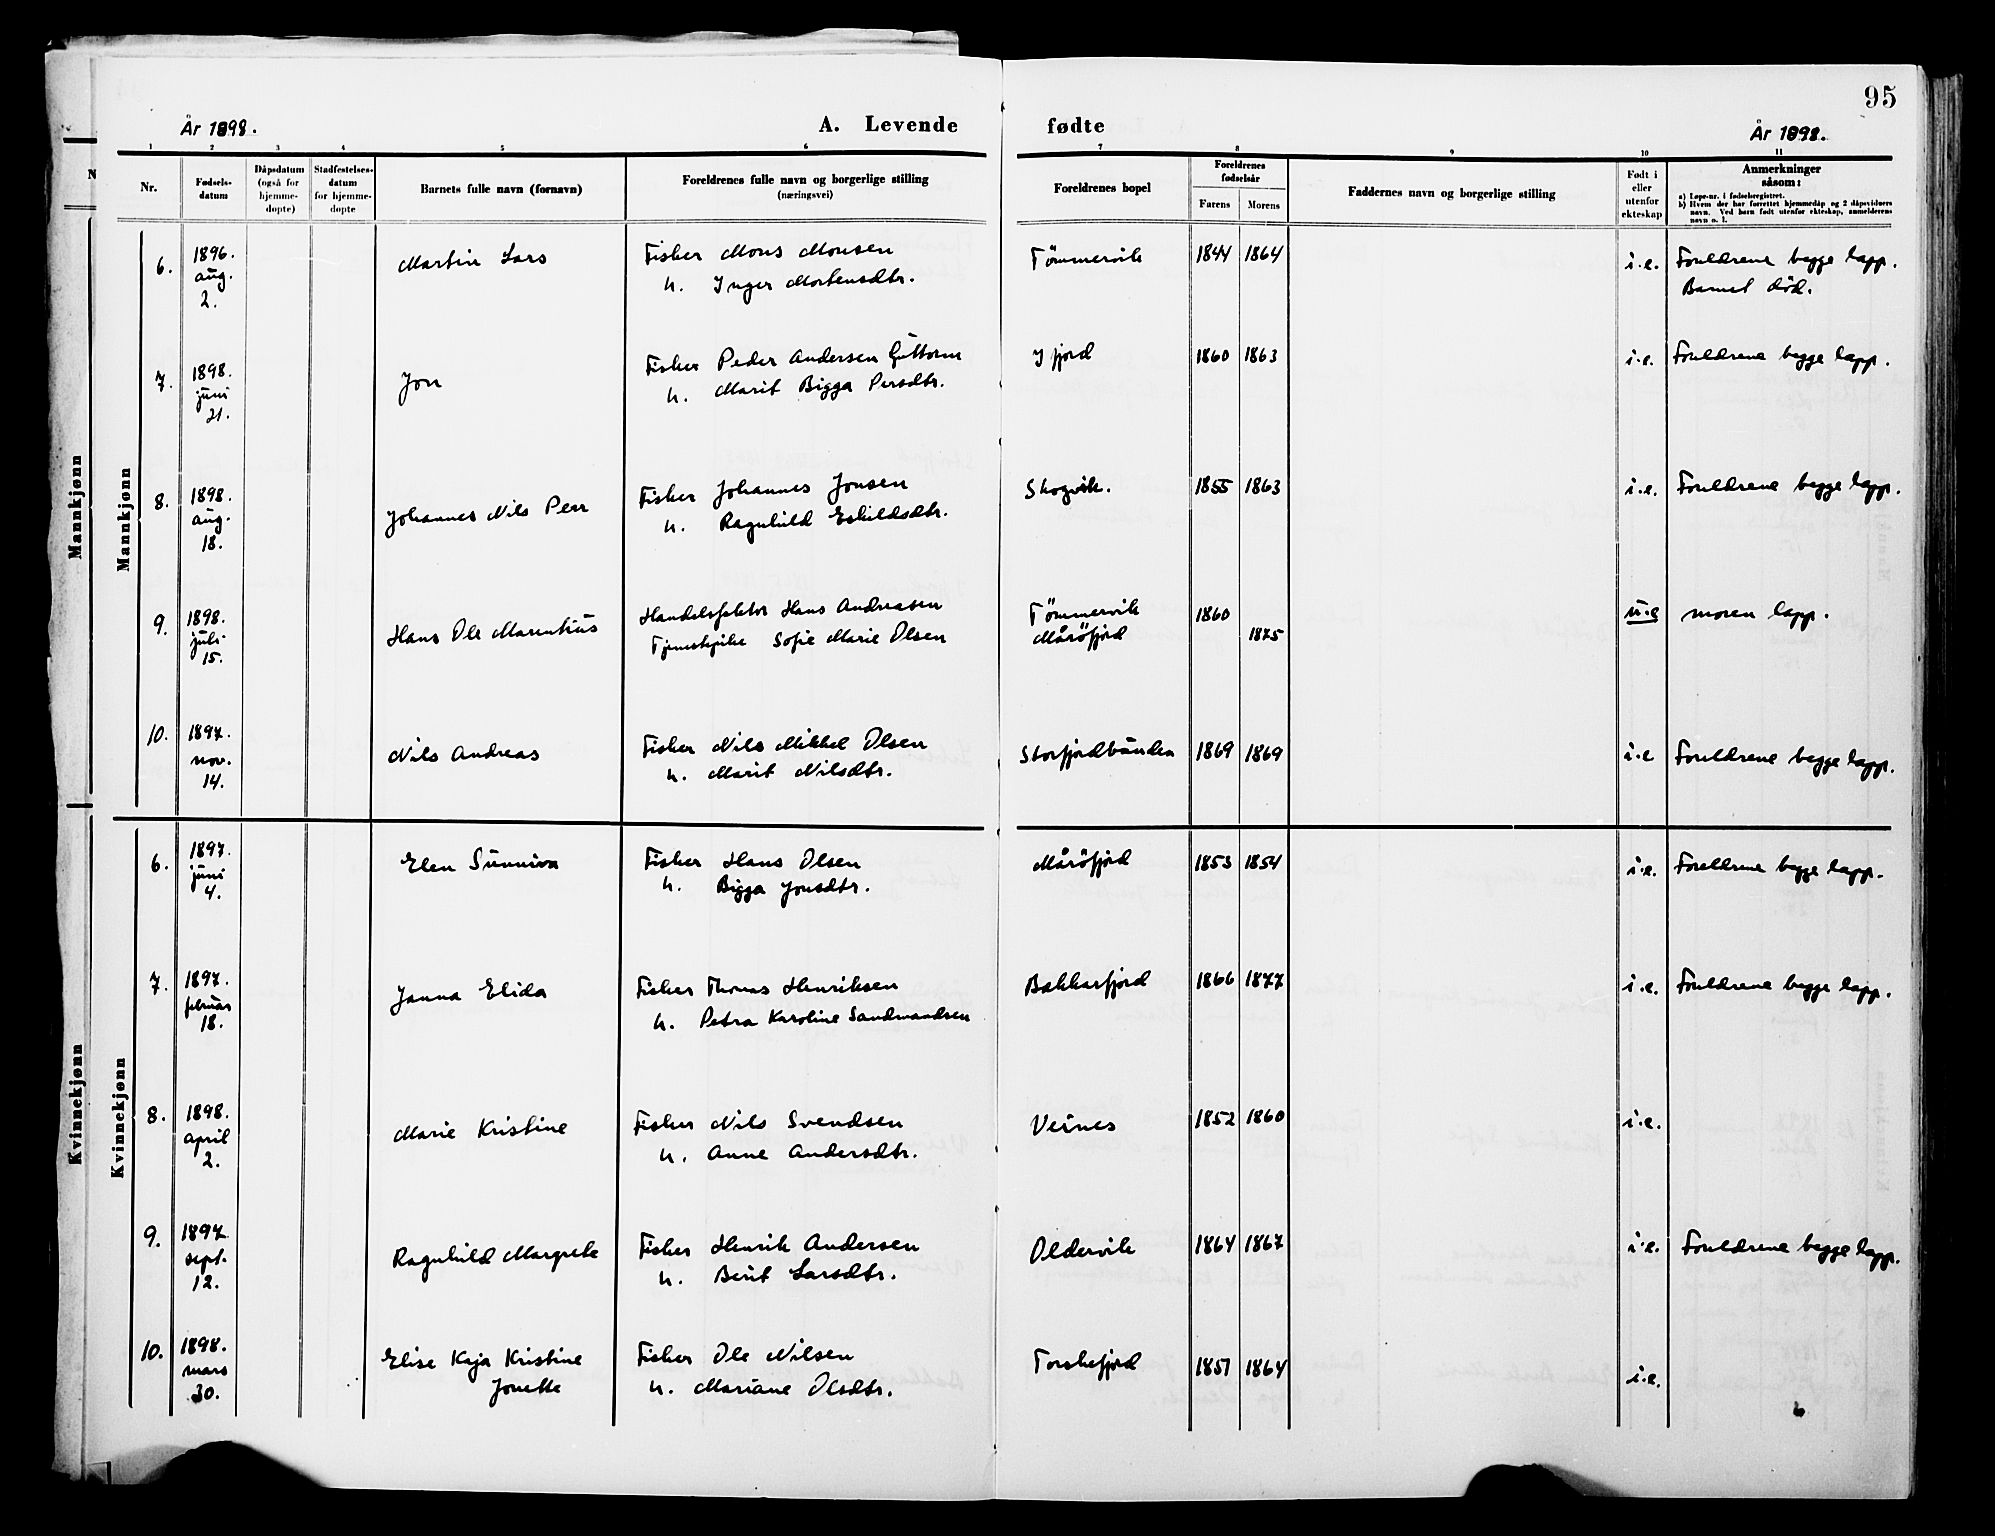 95
År 1898.
A. Levende fødte
År 1898.
1 2 3 4 5 6 7 8 9 10 11
N
Nr.
Fødsels-
datum
Dåpsdatum
(også for
hjemme-
døpte)
Stadfestelses-
datum
for hjemme-
døpte
Barnets fulle navn (fornavn)
Foreldrenes fulle navn og borgerlige stilling
(næringsvei)
Foreldrenes bopel
Foreldrenes
fødselsår
Farens Morens
Faddernes navn og borgerlige stilling
Født i
eller
utenfor
ekteskap
Anmerkninger
såsom:
a) Løpe-nr. i fødselsregistret.
b) Hvem der har forrettet hjemmedåp og 2 dåpsvidners
navn. Ved barn født utenfor ekteskap, anmelderens
navn o. l.
Mannkjønn
Mannkjønn
6. 1896. aug. 2. Martin Lars Fisker Mons Monsen Tømmervik 1844 1864 i.e. Foreldrene begge lapp.
h. Inger Mortensdtr. Barnet død.
7. 1898. juni 21. Jon Fisker Peder Andersen Guttorm Ifjord 1860 1863 i.e. Foreldrene begge lapp.
h. Marit Bigga Persdtr.
8. 1898. aug. 18. Johannes Nils Perr Fisker Johannes Jonsen Skogvik. 1855 1863 i.e. Foreldrene begge lapp.
h. Ragnhild Eskildsdtr.
9. 1898. juli 15. Hans Ole Marentius Handelsfaktor Hans Andreasen Tømmervik 1860 u.e moren lapp.
Tjenestepike Sofie Marie Olsen Mårøfjord 1875
10. 1897. nov. 14. Nils Andreas Fisker Nils Mikkel Olsen Storfjordbunden 1869 1869 i.e Foreldrene begge lapp.
h. Marit Nilsdtr.
Kvinnekjønn
Kvinnekjønn
6. 1897. juni 4. Elen Sunniva Fisker Hans Olsen Mårøfjord 1853 1854 i.e. Foreldrene begge lapp.
h. Bigga Jonsdtr.
7. 1897. februar 18. Janna Elida Fisker Thomas Henriksen Bekkarfjord 1866 1877 i.e. Foreldrene begge lapp.
h. Petra Karoline Sandmandsen
8. 1898. april 2. Marie Kristine Fisker Nils Svendsen Veines 1852 1860 i.e.
h. Anne Andersdtr.
9. 1897. sept. 12. Ragnhild Margrete Fisker Henrik Andersen Oldervik 1864 1867 i.e. Foreldrene begge lapp.
h. Berit Larsdtr.
10. 1898. mars 30. Elise Kaja Kristine Fisker Ole Nilsen Torskefjord 1857 1864 i.e.
Jonette h. Mariane Olsdtr.